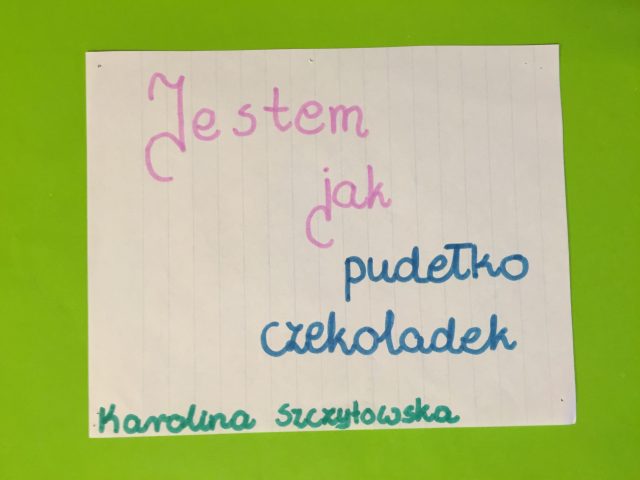 Jestem
jak
pudełko
czekoladek
Karolina Szczyłowska